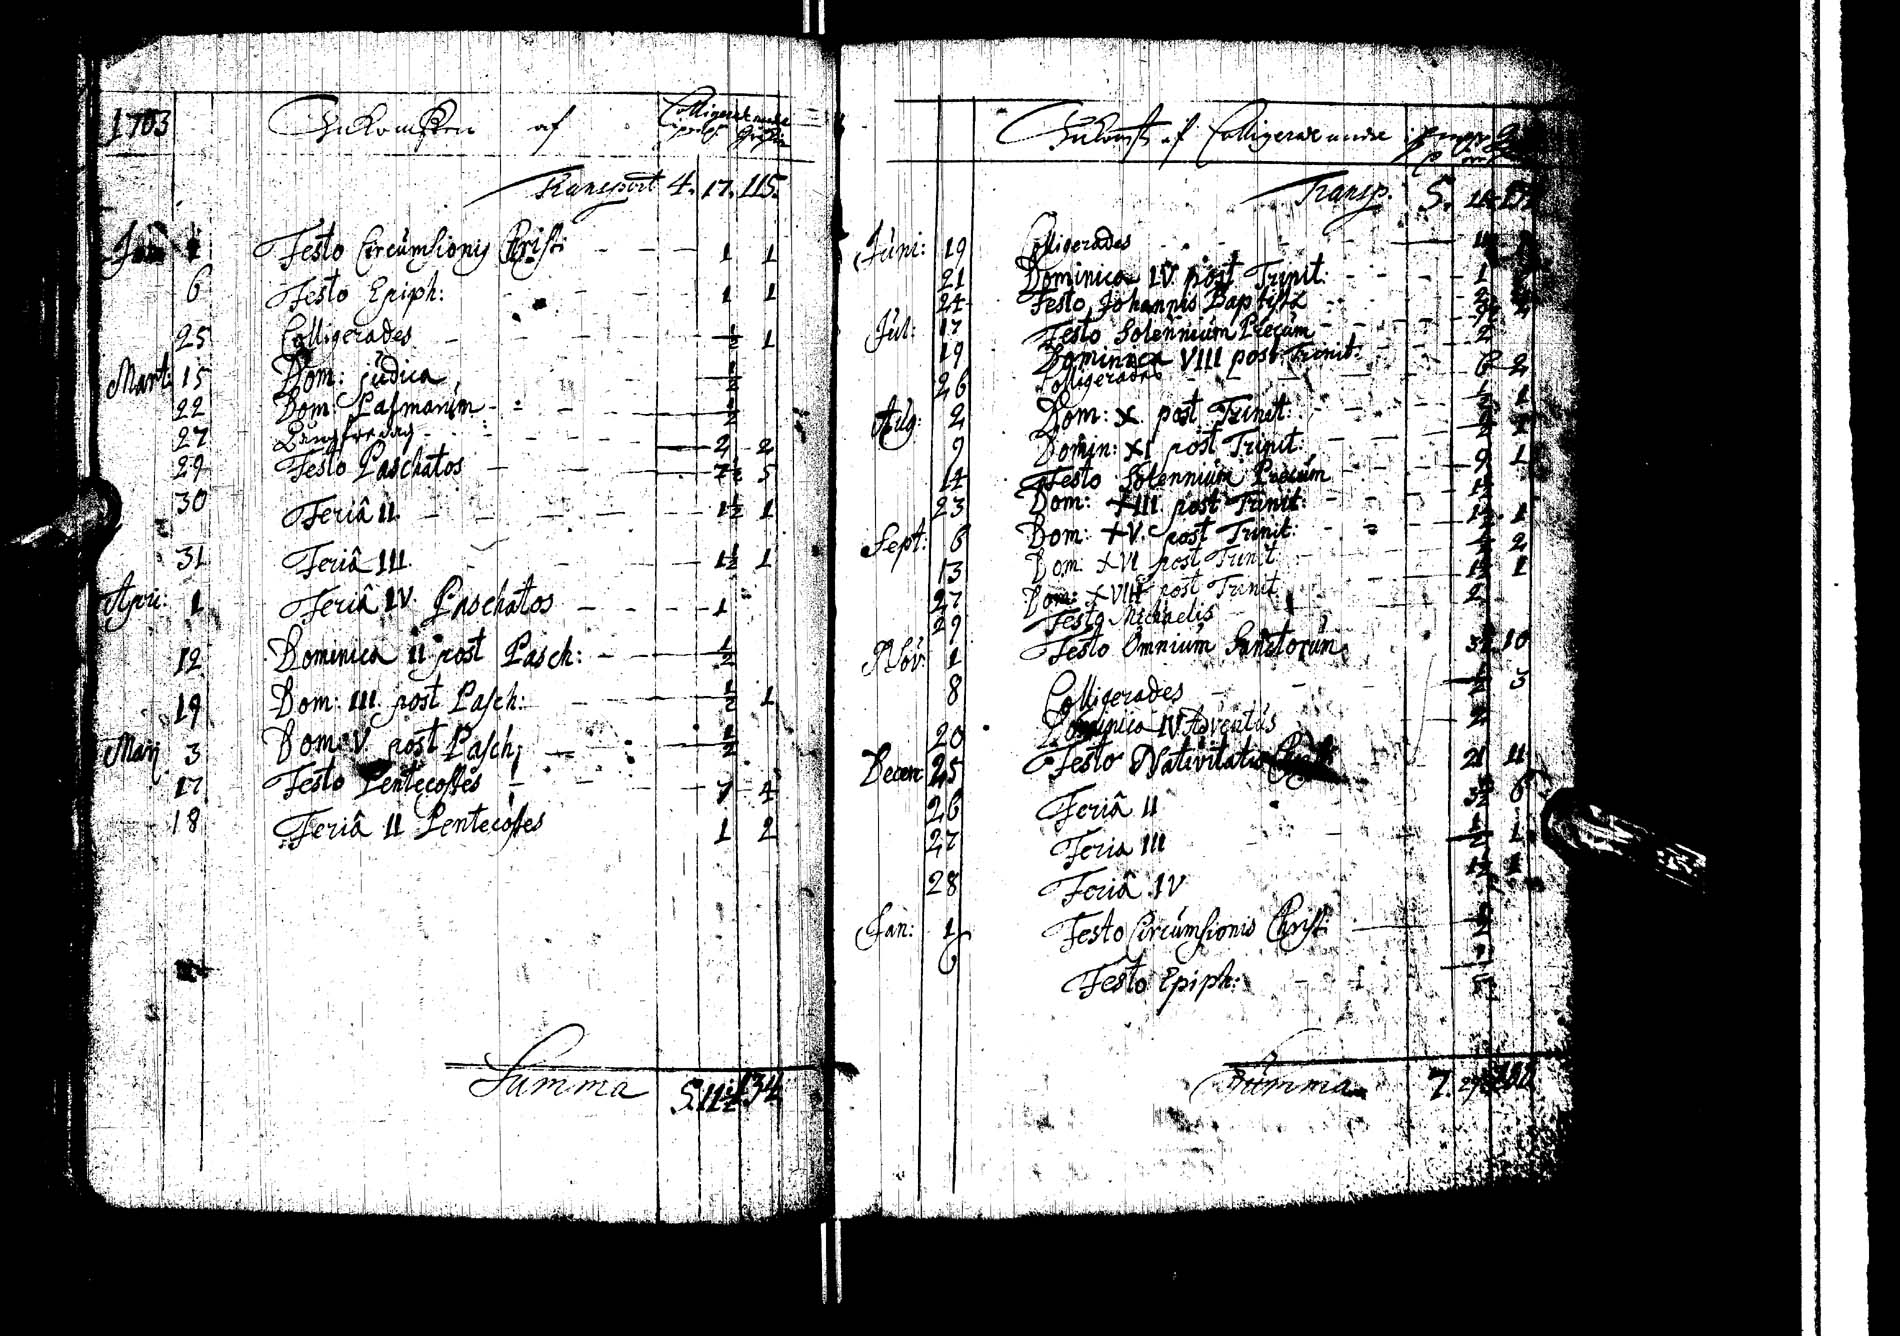 1703 Inkompsten af Colligerat unde
Transport 4. 17. 115.
Jan 1 Festo Circumsionis Christi 1 1
6 Festo Epiph: 1 1
25 Colligerades ½ 1
Mart: 15 Dom: judica ½
22 Dom: Palmarum ½
27 Långfredag 2 2
29 Festo Paschatos 7½ 5
30 Feriâ II 1½ 1
31 Feriâ III 1½ 1
Apri: 1 Feriâ IV Paschatos 1
12 Dominica II post Pasch: ½
19 Dom: III. post Pasch: ½ 1
Maij 3 Dom: V. post Pasch: ½
17 Festo Pentecostes 7 4
18 Feriâ II Pentecostes 1 2
Summa 5. 11½ 134
Inkomst af Colligerat unde
Transp. 5.
Juni: 19 Colligerades
21 Dominica IV post Trinit: 1
24 Festo Johannis Baptistæ
Jul: 17 Festo Solennium Precum
19 Dominica VIII post Trinit: 2
26 Colligerades 6 2
Aug: 2 Dom: X post Trinit: 1
9 Domin: XI post Trinit:
14 Festo Solennium Precum 9 1
23 Dom: XIII post Trinit: 1½
Sept: 6 Dom: XV. post Trinit: 1½ 1
13 Dom: XVI post Trinit ½ 2
27 Dom: XVIII post Trinit 1½ 1
29 Festo Michaelis 2
Nov: 1 Festo Omnium Sanctorum 3½ 10
8 Colligerades ½ 3
20 Dominica IV Adventûs 2
Decem 25 Festo Nativitatis 21 11
26 Feriâ II 3½ 6
27 Feria III ½ 1
28 Feriâ IV 1½ 1
Jan: 1 Festo Circumsionis Christi
6 Festo Epiph:
Summa 7.